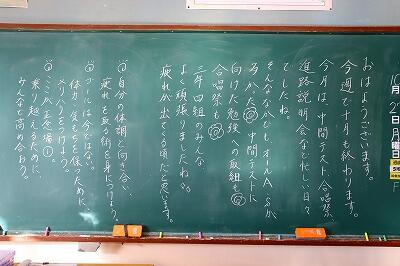 おはようございます。
今週で十月も終わります。
今月は、中間テスト、合唱祭、
進路説明会など忙しい日々
でしたね。
そんななかでも、オールAが
多かった中間テストに
向けた勉強への取組も
合唱祭も
三年四組のみんな
よく頑張りましたね。
疲れが出てくる頃だと思います。
自分の体調と向き合い
疲れを取る術を身につけよう。
ゴールは今ではない。
体力、気もちを保つために
メリハリをつけよう。
ここが正念場①。
乗り越えるために、
みんなで高め合おう。
10月2日月曜日